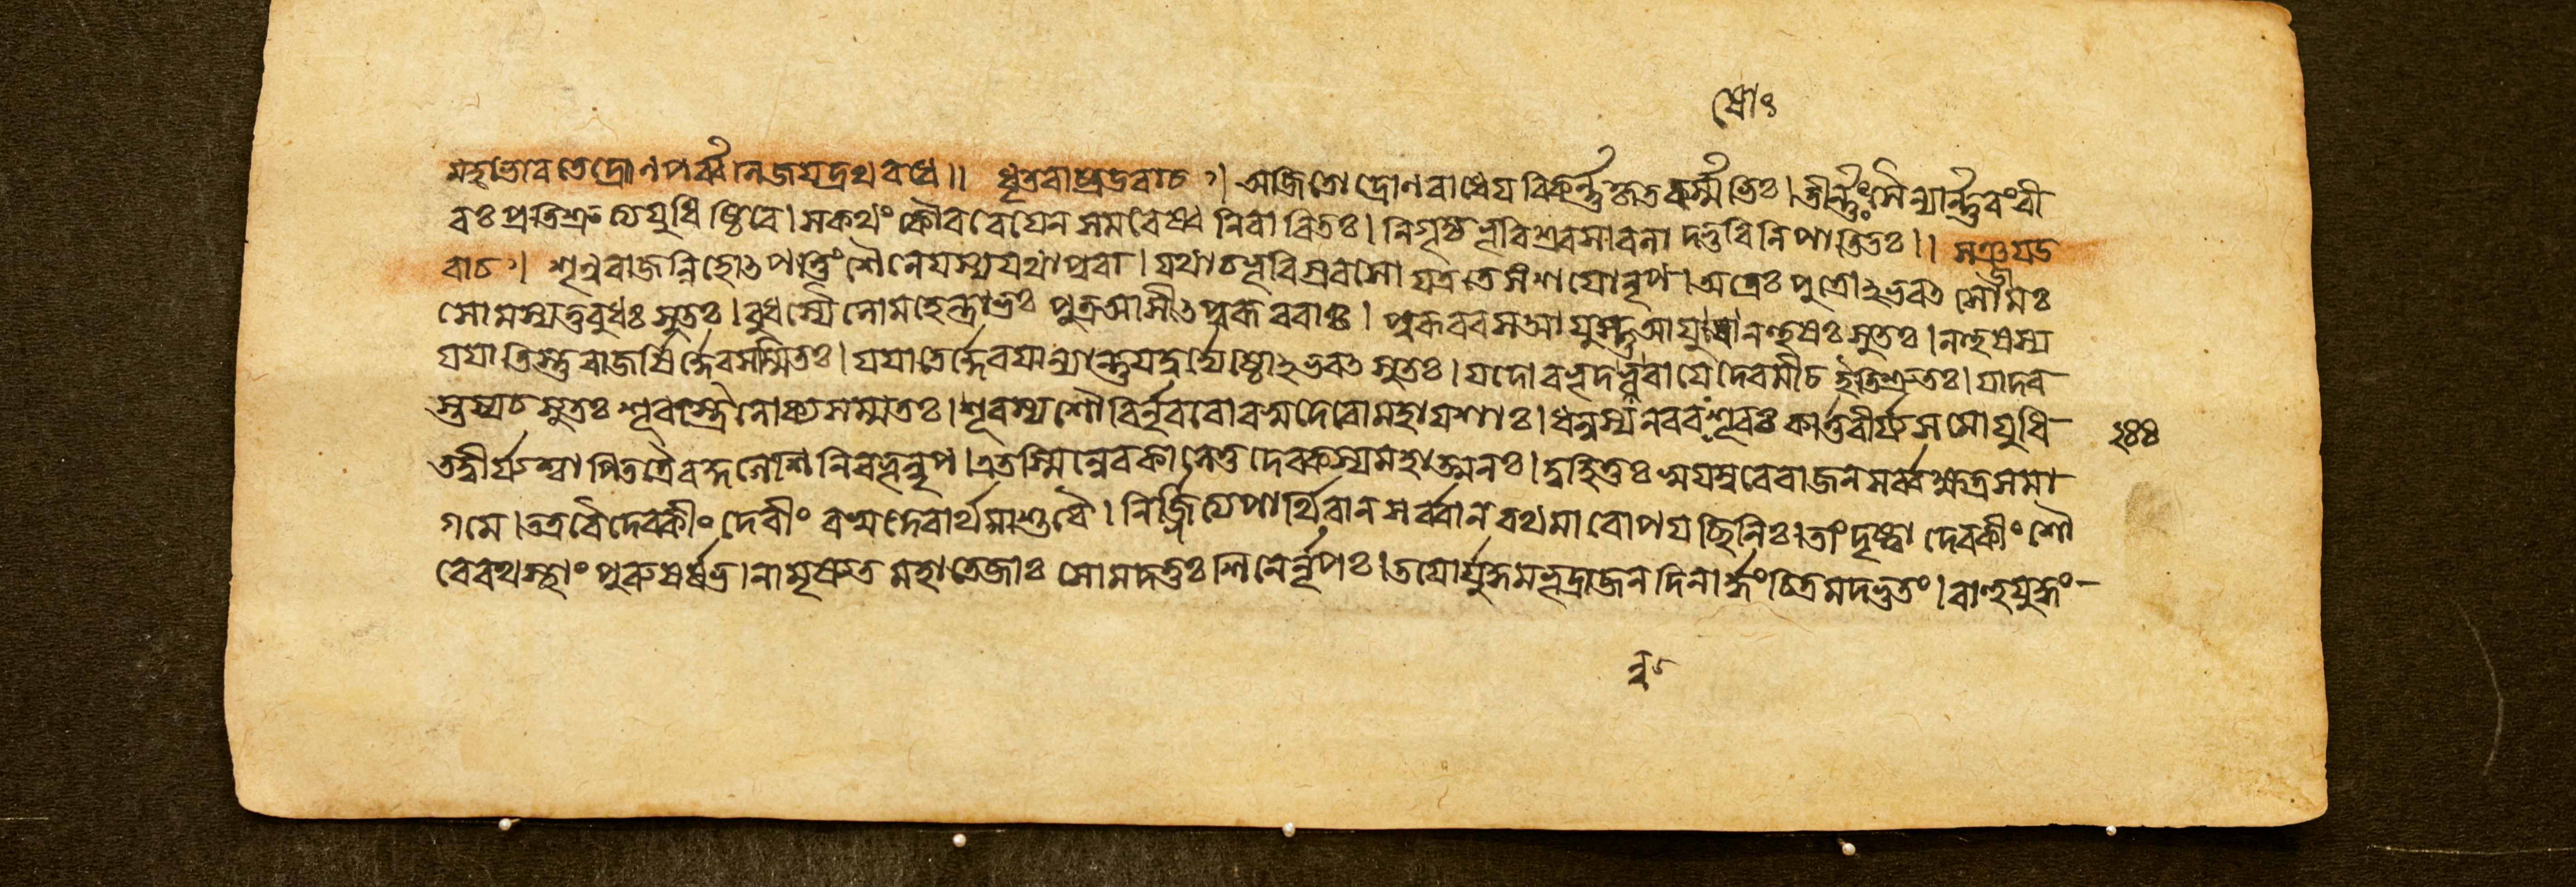 দ্রোং
মহাভাৰতে দ্রোণপর্ব্বনি জয়দ্রথবধে॥ ধৃতৰাষ্ট্রউবাচ। অজিতো দ্রোণৰাধেয বিকর্ন্নকৃতবর্ম্মভিঃ। তীর্ন্নঃ সৈন্যার্ন্নবং বী
ৰঃ প্রতিশ্রুত্য যুধিষ্ঠিৰে। স কথং কৌৰবেযেন সমৰেষ্বনিবাৰিতঃ। নিগৃহ্য ভূৰিশ্রবসা বলাদ্ভুবি নিপাতিতঃ॥ সঞ্জযউ
বাচ। শৃনু ৰাজন্নিহোৎপত্তিং শৈনেযস্য যথা পুৰা। যথা চ ভূৰিশ্রবসো যত্র তে সংশযো নৃপ। অত্রেঃ পুত্রো২ভবৎ সোমঃ
সোমস্য তু বুধঃ সুতঃ। বুধস্যৈলো মহেন্দ্রাভঃ পুত্র আসীৎ পুৰূৰবাঃ। পুৰূৰবস আযুস্তু আযুষো নহুষঃ সুতঃ। নহুষস্য
যযাতিস্তু ৰাজর্ষির্দ্দেবসম্মিতঃ। যযাতের্দ্দেবযান্যান্তু যদুর্জ্যেষ্ঠো২ভবৎ সুতঃ। যদোৰভূদন্ববাযে দেবমীঢ ইতি শ্রুতঃ। যাদব
স্তস্য চ সুতঃ শূৰস্ত্রৈলোক্যসম্মতঃ। শূৰস্য শৌৰির্নৃবৰো বসুদেবো মহাযশাঃ। ধনুষ্যনবৰঃ শূৰঃ কার্ত্তবীর্য্যসমো যুধি
তদ্বীর্য্যশ্চাপি তত্রৈব কুলে শিনিৰভূন্নৃপ। এতস্মিন্নেব কালে তু দেবকস্য মহাত্মনঃ। দুহিতুঃ স্বযম্বৰে ৰাজন সর্ব্বক্ষত্রসমা
গমে। তত্র বৈ দেবকীং দেবীং বসুদেবার্থমাশু বৈ। নির্জ্জিত্য পার্থিবান সর্ব্বান ৰথমাৰোপযচ্ছিনিঃ। তাং দৃষ্ট্বা দেবকীং শৌ
ৰে ৰথস্থাং পুৰুষর্ষভ। নামৃষ্যত মহাতেজাঃ সোমদত্তঃ শিনের্নৃপঃ। তযোর্যুদ্ধমভূদ্রাজন দিনার্দ্ধং চিত্রমদ্ভুতং। বাহুযুদ্ধং
২৪৪